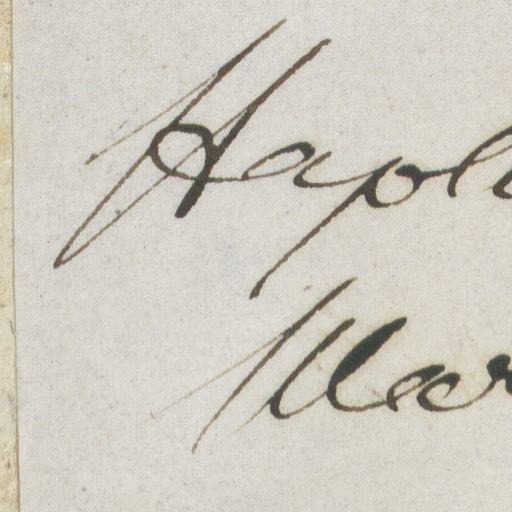 Haplo
Mar